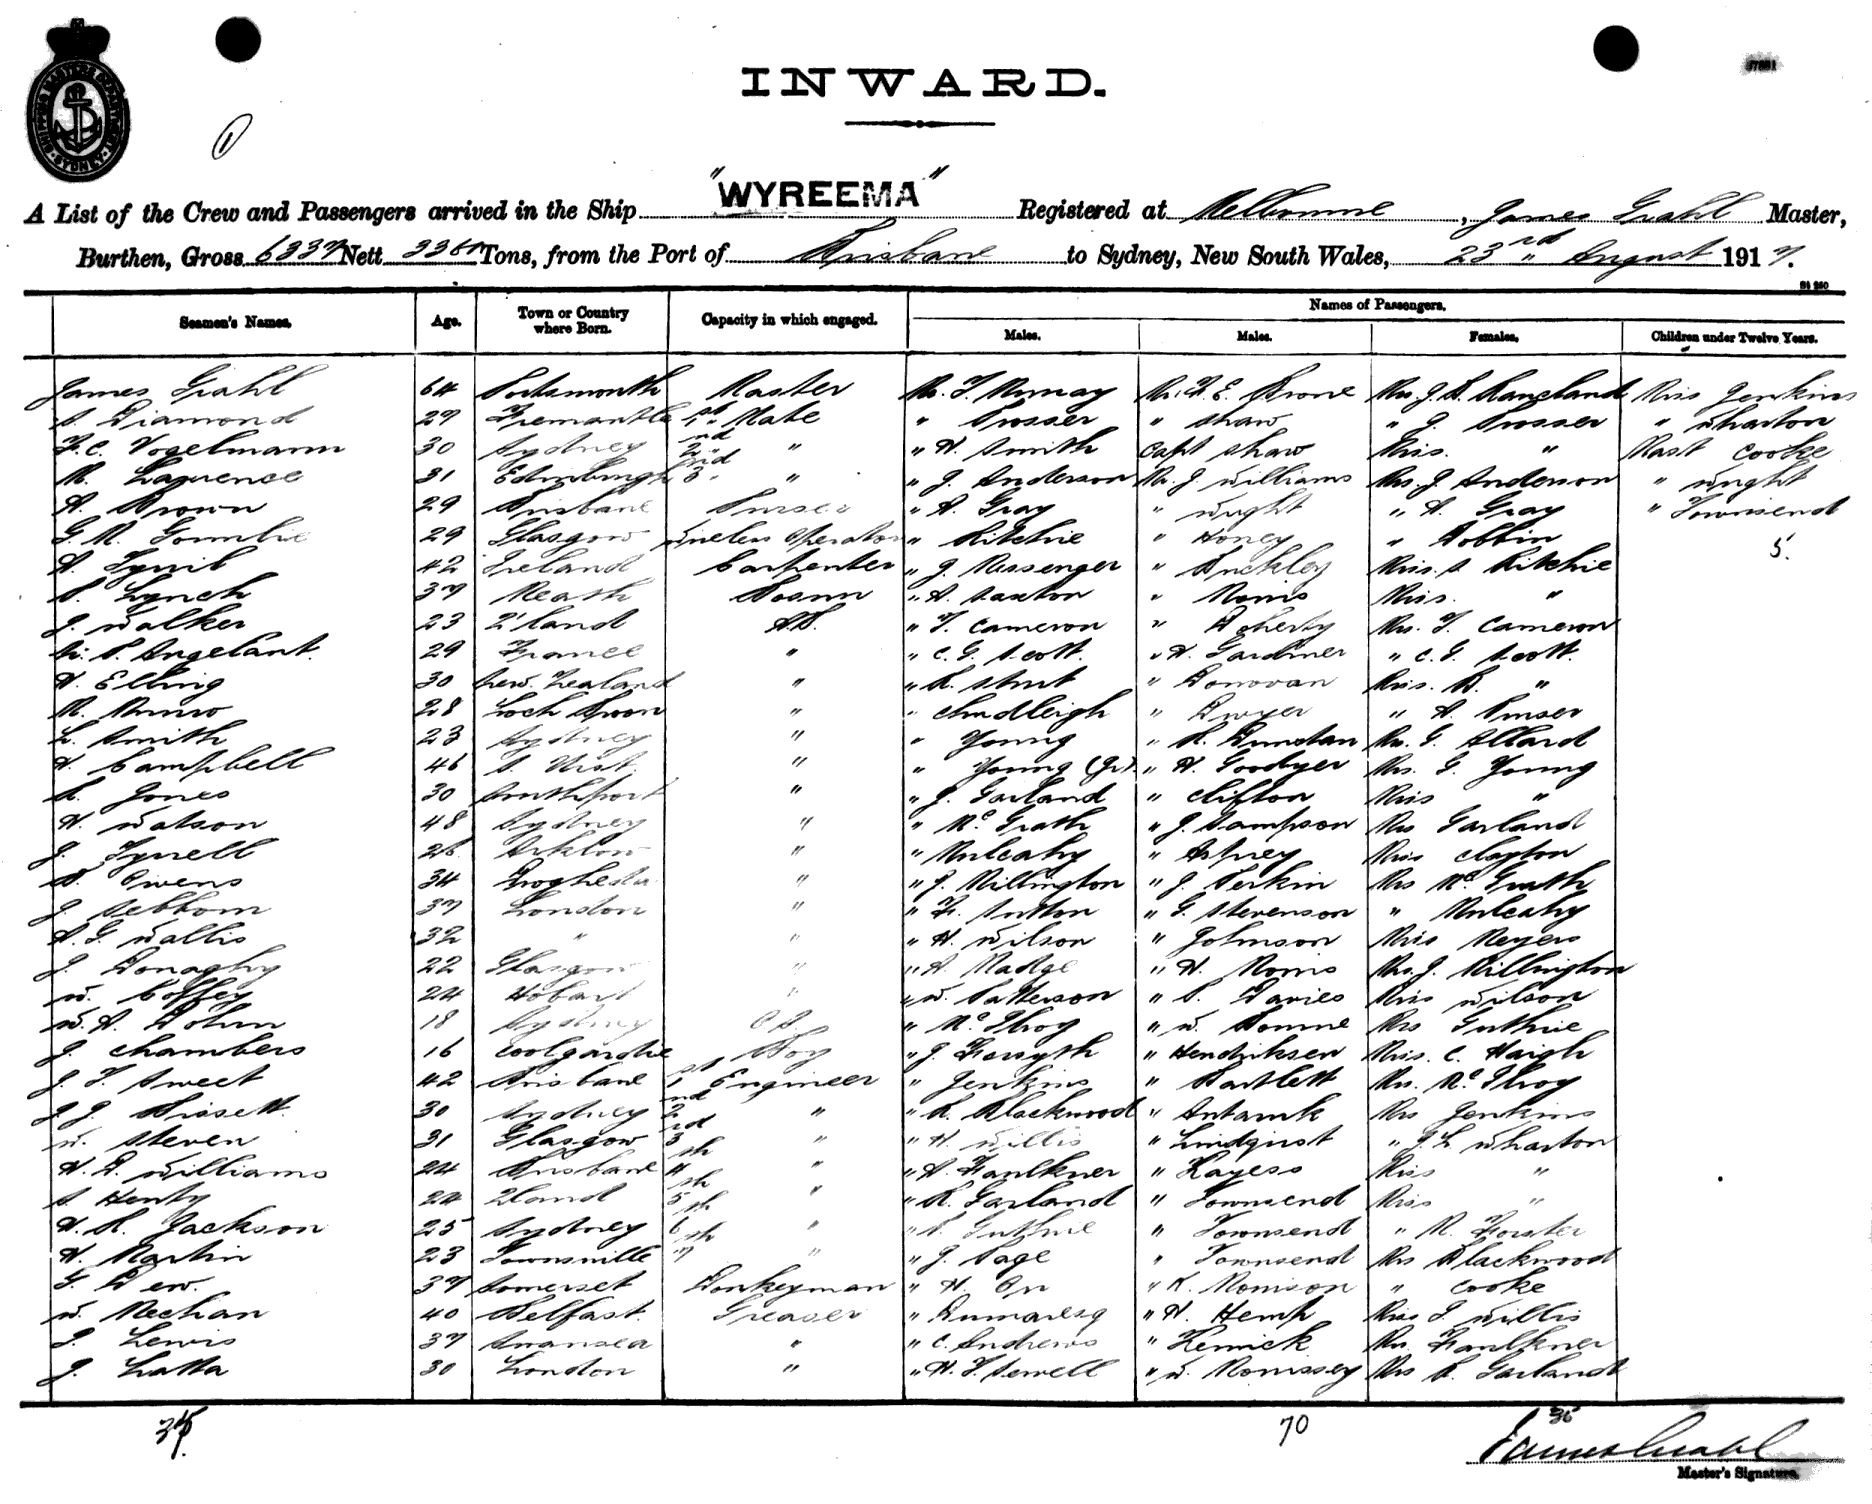 INWARD.
"WYREEMA"
A List of the Crew and Passengers arrived in the Ship Registered at Melbourne, James Grahl Master,
Burthen, Gross 6337 Nett Tons, from the Port of Brisbane to Sydney, New South Wales, 23rd August 1917.
Seamen's Names. Age. Town or Country where Born. Capacity in which engaged. Names of Passengers.
Males. Males. Females. Children under Twelve Years.
James Grahl 64 Portsmouth Master Mr. T. Murray Mr. H. E. Krone Mrs J. R. Miss Jenkins
S. Diamond 29 Fremantle 1st Mate " Prosser " Shaw " J. Prosser " Wharton
F. C. Vogelmann 30 Sydney 2nd " " H. Smith Capt Shaw Miss. " Mast Cooke
M. Laurence 31 Edinburgh 3rd " " J. Anderson Mr. J. Williams Mrs. J. Anderson " Wright
A. Brown 29 Brisbane Purser " A. Gray " Wright " A. Gray " Townsend
G. M. 29 Glasgow Wireless Operator " Ritchie " Honey " Dobbin 5.
A. 42 Ireland Carpenter " J. Messenger " Buckley Miss. S Ritchie
P. Lynch 37 Meath Bosun " A. Saxton " Morris Miss. "
J. Walker 23 Q'land AB. " T. Cameron " Doherty Mrs. T. Cameron
29 France " " C. G. Scott. " H. Gardiner " C. G. Scott.
H. Elling 30 New Zealand " " R. " Donovan Miss. B. "
M. Munro 28 Loch " " Chudleigh " Dwyer " A. Purser
L. Smith 23 Sydney " " Young " R. Dunstan Mrs. G. Allard
A. Campbell 46 S. Uist. " " Young (Jr). " H. Goodyer Mrs. G. Young
R. Jones 30 Southport " " J. Garland " Clifton Miss "
H. Watson 48 Sydney " " McGrath " J. Sampson Mrs Garland
J. Tyrell 26 Arklow " " Mulcahy " Miss Clayton
D. Owens 34 " " J. Millington " J. Perkin Mrs McGrath
J. Sebbom 37 London " " F. Sutton " G. Stevenson " Mulcahy
A. G. Wallis 32 " " " H. Wilson " Johnson Miss Meyers
J. Donaghy 22 Glasgow " " A. Madge " H. Morris Mrs. J. Millington
W. Coffey 24 Hobart " " W. Patterson " P. Davies Miss Wilson
W. A. Dohm 18 Sydney O.S. " McIlroy " W. Bourne Mrs Guthrie
J. Chambers 16 Coolgardie Boy " J. Forsyth " Hendriksen Miss. C. Haigh
J. T. Sweet 42 Brisbane 1st Engineer " Jenkins " Bartlett Mrs. McIlroy
J. J. Bissett. 30 Sydney 2nd " " R. Blackwood " Mrs Jenkins
W. Steven 31 Glasgow 3rd " " H. Willis " Lindquist " J. L. Wharton
H. A. Williams 24 Brisbane 4th " " A. Faulkner " Miss "
S Henty 24 Qland 5th " " R. Garland " Townsend Miss "
H. R. Jackson 25 Sydney 6th " " P. Guthrie " Townsend " M. Forster
H. Martin 23 Townsville 7th " " J. Page " Townsend Mrs Blackwood
G. Dew. 37 Somerset Donkeyman " H. Orr " R. Morrison " Cooke
W. Meehan 40 Belfast. Greaser " Dumaresq " H. Hemp Miss J. Willis
J. Lewis 37 Swansea " " C. Andrews " Mrs. Faulkner
J. Latta 30 London " " H. T. Sewell " W. Morrissey Mrs R. Garland
70 36
James Grahl
Master's Signature.